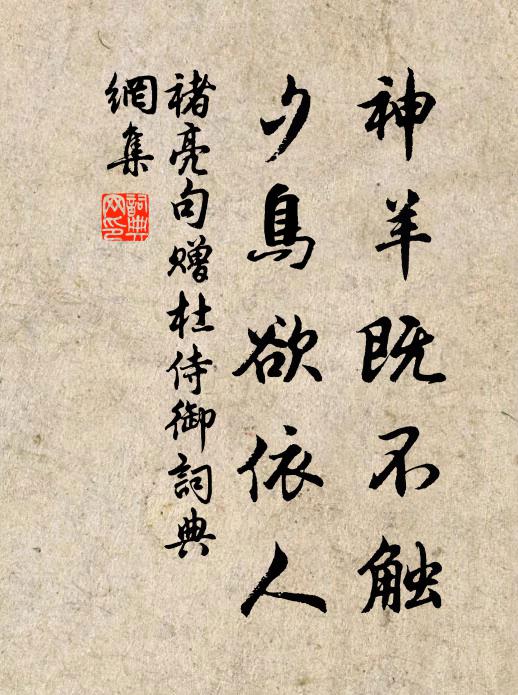 神羊既不触
夕鳥欲依人
褚亮句赠杜侍御詞典
網集
詞典
网印